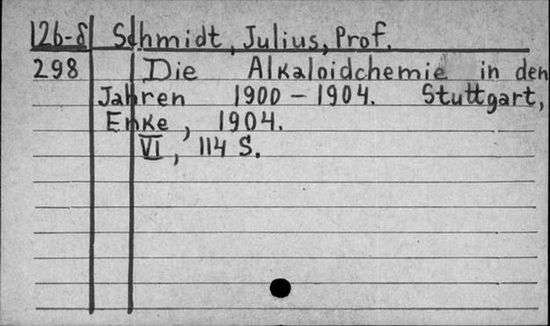 12b-δ Schmidt, Julius, Prof.
298 Die Alkaloidchemie in den
Jahren 1900 – 1904. Stuttgart,
Enke, 1904.
VI, 114 S.